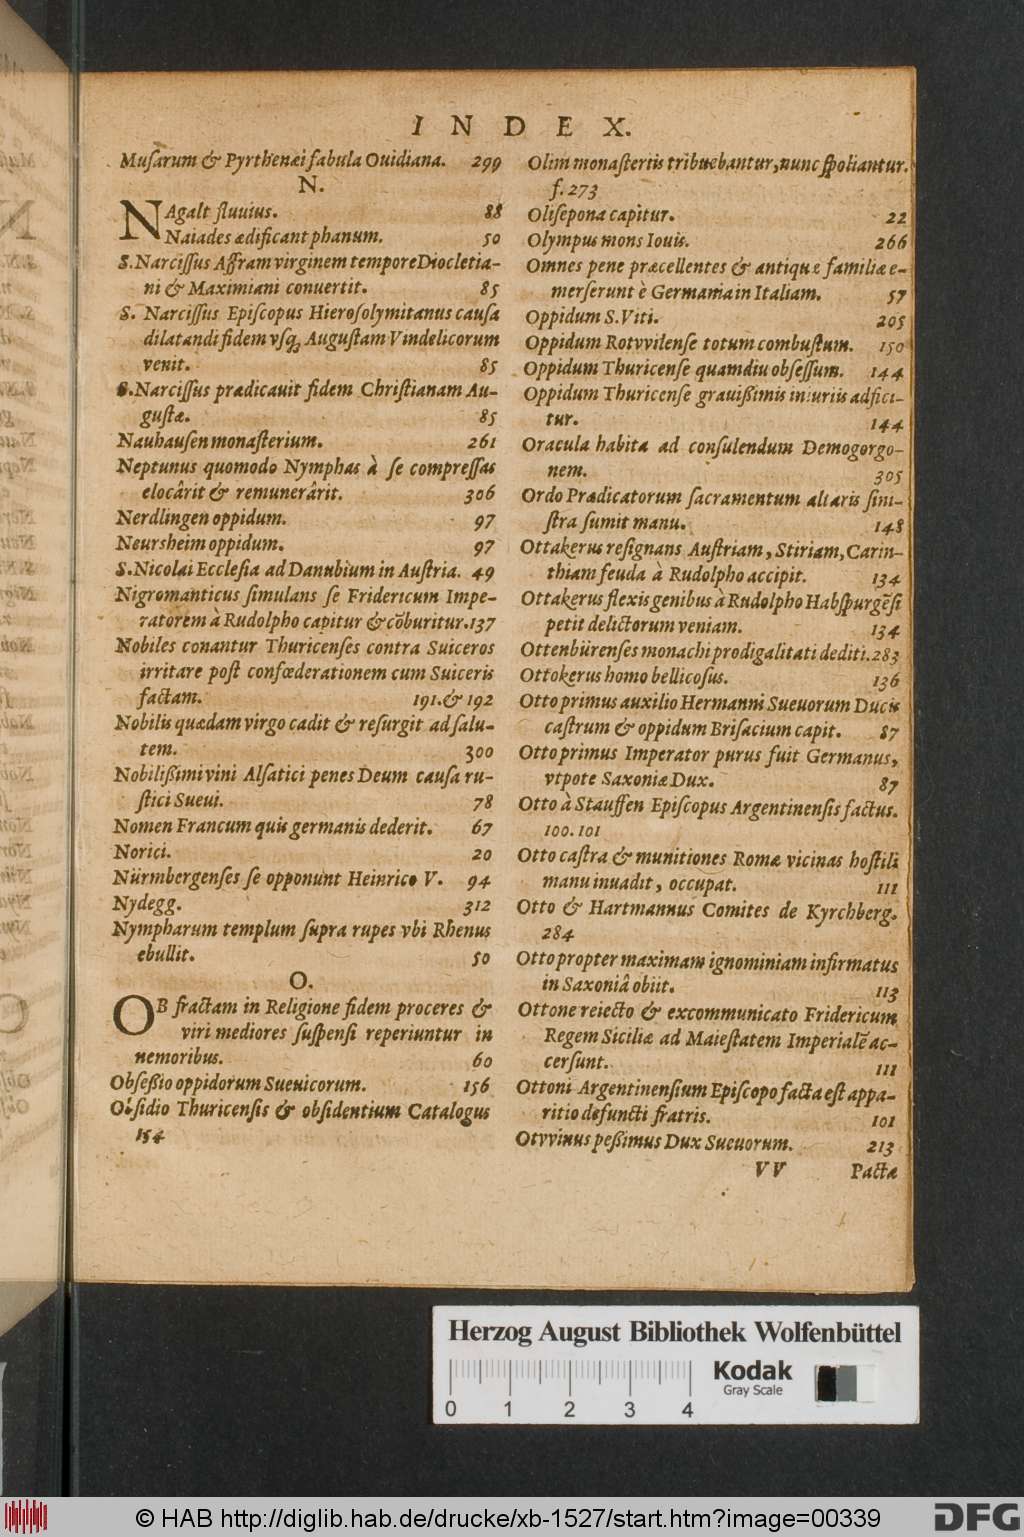 INDEX.
Muſarum & Pyrthenæi fabula Ouidiana. 299
N.
NAgalt fluuius. 88
Naiades ædificant phanum. 50
S. Narciſſus Affram virginem tempore Diocletia-
ni & Maximiani conuertit. 85
S. Narciſſus Epiſcopus Hieroſolymitanus cauſa
dilatandi fidem vſq; Auguſtam Vindelicorum
venit. 85
S. Narciſſus prædicauit fidem Chriſtianam Au-
guſtæ. 85
Nauhauſen monaſterium. 261
Neptunus quomodo Nymphas à ſe compreſſas
elocârit & remunerârit. 306
Nerdlingen oppidum. 97
Neursheim oppidum. 97
S. Nicolai Eccleſia ad Danubium in Auſtria. 49
Nigromanticus ſimulans ſe Fridericum Impe-
ratorem à Rudolpho capitur & cõburitur. 137
Nobiles conantur Thuricenſes contra Suiceros
irritare poſt confœderationem cum Suiceris
factam. 191. & 192
Nobilis quædam virgo cadit & reſurgit ad ſalu-
tem. 300
Nobilißimi vini Alſatici penes Deum cauſa ru-
ſtici Sueui. 78
Nomen Francum quis germanis dederit. 67
Norici. 20
Nürmbergenſes ſe opponunt Heinrico V. 94
Nydegg. 312
Nympharum templum ſupra rupes vbi Rhenus
ebullit. 50
O.
OB fractam in Religione fidem proceres &
viri mediores ſuſpenſi reperiuntur in
nemoribus. 60
Obſeßio oppidorum Sueuicorum. 156
Obſidio Thuricenſis & obſidentium Catalogus
154
Olim monaſteriis tribuebantur, nunc ſpoliantur.
f. 273
Oliſepona capitur. 22
Olympus mons Iouis. 266
Omnes pene præcellentes & antiquæ familiæ e-
merſerunt è Germania in Italiam. 57
Oppidum S. Viti. 205
Oppidum Rotvvilenſe totum combuſtum. 150
Oppidum Thuricenſe quamdiu obſeſſum. 144
Oppidum Thuricenſe grauißimis iniuriis adfici-
tur. 144
Oracula habita ad conſulendum Demogorgo-
nem. 305
Ordo Prædicatorum ſacramentum altaris ſini-
ſtra ſumit manu. 148
Ottakerus reſignans Auſtriam, Stiriam, Carin-
thiam feuda à Rudolpho accipit. 134
Ottakerus flexis genibus à Rudolpho Habſpurgẽſi
petit delictorum veniam. 134
Ottenbürenſes monachi prodigalitati dediti. 283
Ottokerus homo bellicoſus. 136
Otto primus auxilio Hermanni Sueuorum Ducis
caſtrum & oppidum Briſacium capit. 87
Otto primus Imperator purus fuit Germanus,
vtpote Saxoniæ Dux. 87
Otto à Stauffen Epiſcopus Argentinenſis factus.
100. 101
Otto caſtra & munitiones Romæ vicinas hoſtili
manu inuadit, occupat. 111
Otto & Hartmannus Comites de Kyrchberg.
284
Otto propter maximam ignominiam infirmatus
in Saxoniâ obiit. 113
Ottone reiecto & excommunicato Fridericum
Regem Siciliæ ad Maieſtatem Imperialẽ ac-
cerſunt. 111
Ottoni Argentinenſium Epiſcopo facta eſt appa-
ritio defuncti fratris. 101
Otvvinus peßimus Dux Sueuorum. 213
VV Pactæ
Herzog August Bibliothek Wolfenbüttel
0 1 2 3 4
Kodak
Gray Scale
© HAB http://diglib.hab.de/drucke/xb-1527/start.htm?image=00339
DFG